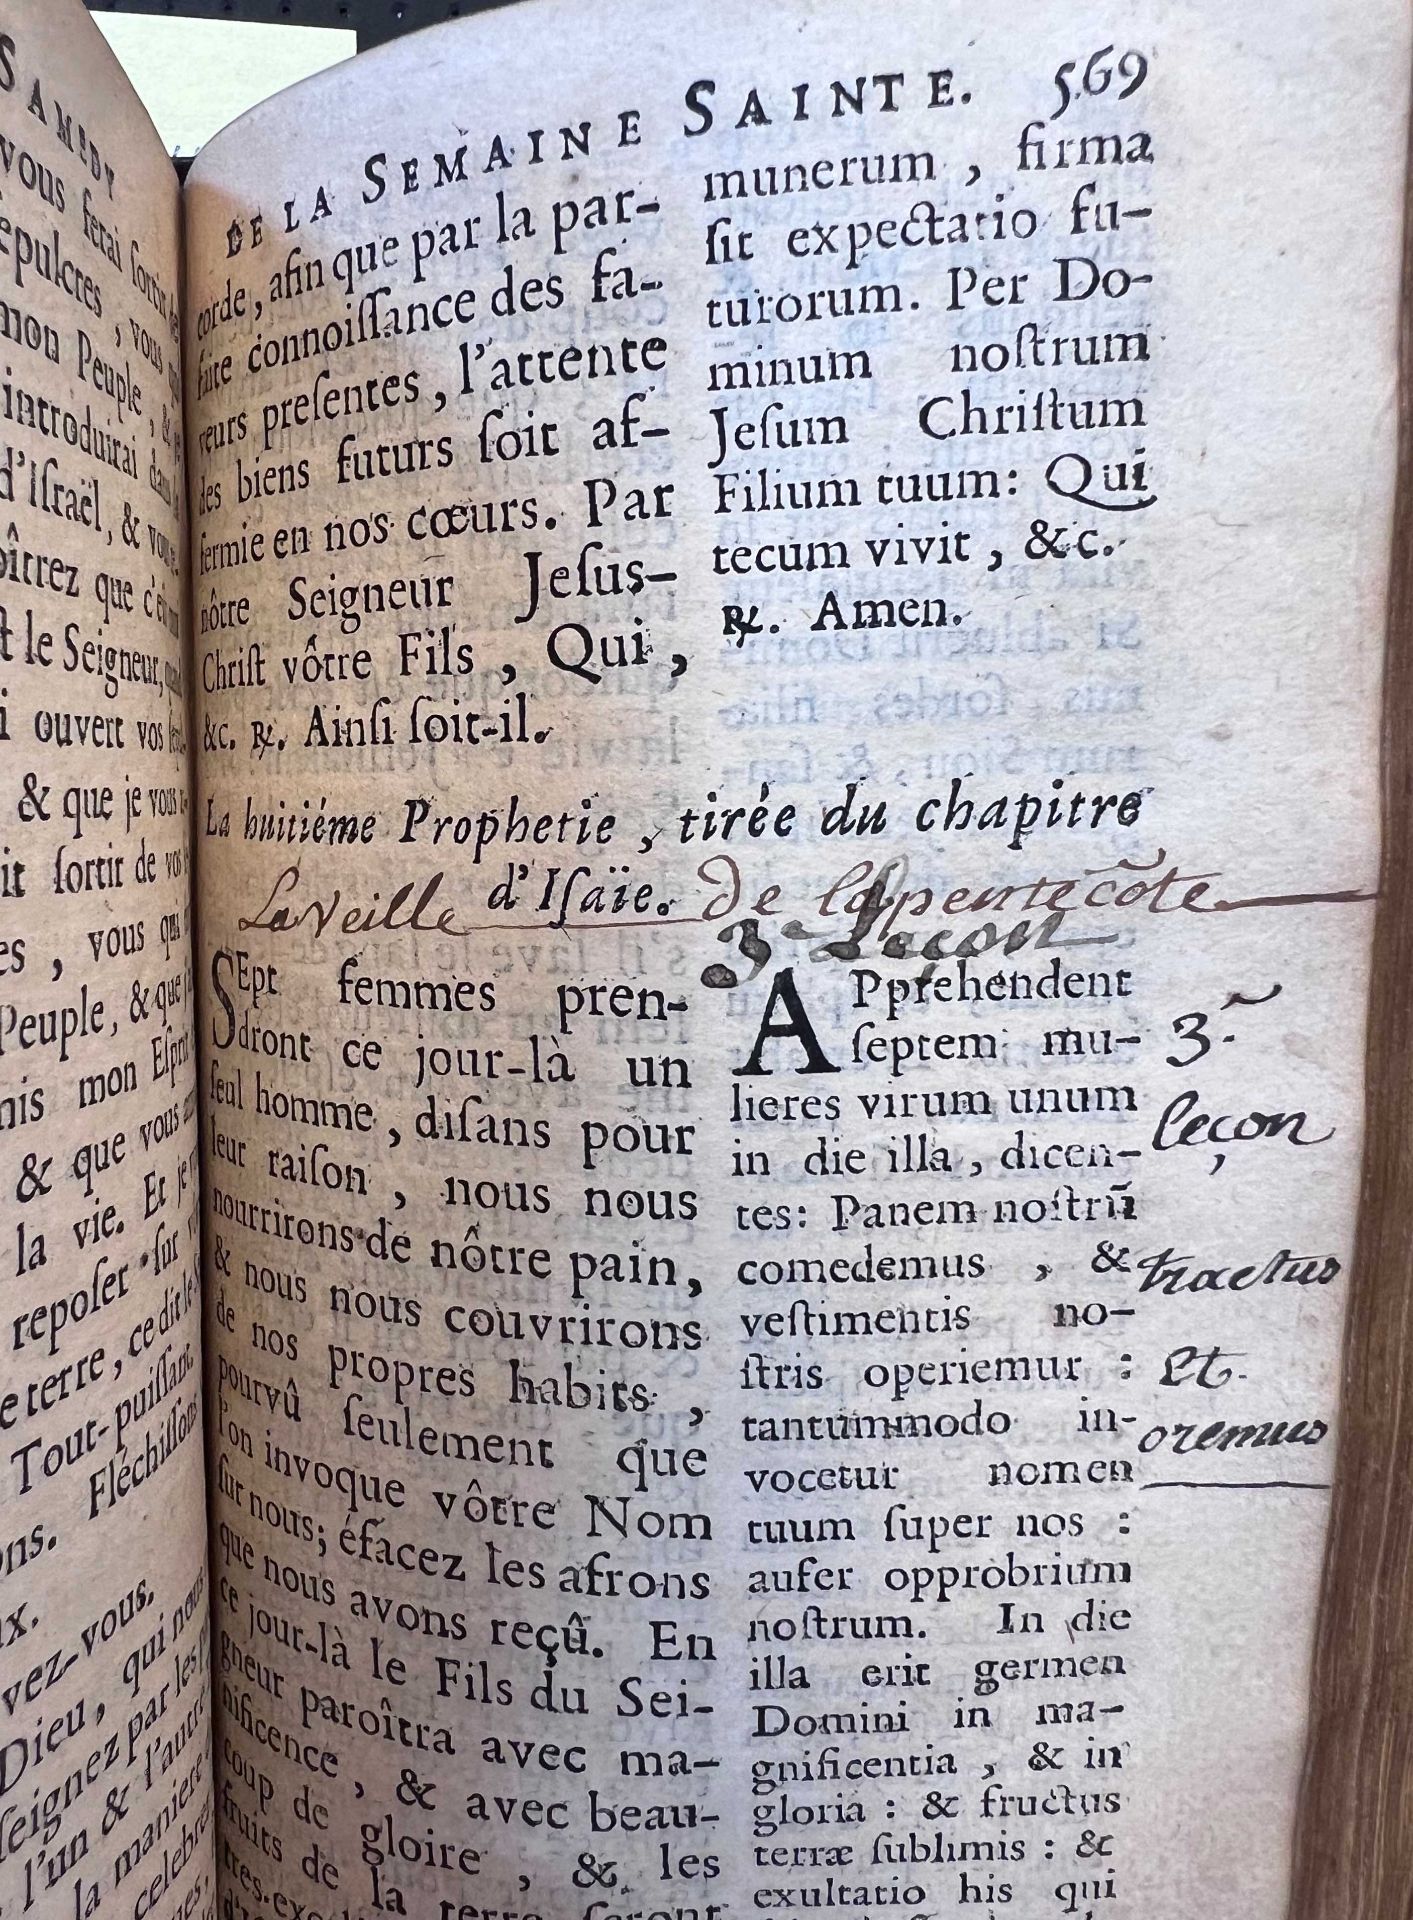 SAMEDY
vous ferai ſortir
mon Peuple, &
introduirai dans
d'Iſraël, & vous
que c'eſt
le Seigneur,
ouvert vos
& que je vous
ſortir de vos
, vous qui
Peuple, & que
mon Eſprit
& que vous
la vie. Et je
repoſer ſur
terre, ce dit le
Tout-puiſſant.
Fléchiſſons
vez-vous.
Dieu, qui nous
ſeignez par les
l'un & l'autre
la maniere
DE LA SEMAINE SAINTE. 569
corde, afin que par la par-
faite connoiſſance des fa-
veurs preſentes, l'attente
des biens futurs ſoit af-
fermie en nos cœurs. Par
nôtre Seigneur Jeſus-
Chriſt vôtre Fils, Qui,
&c. ℟. Ainſi ſoit-il.
munerum, firma
ſit expectatio fu-
turorum. Per Do-
minum noſtrum
Jeſum Chriſtum
Filium tuum: Qui
tecum vivit, &c.
℟. Amen.
La huitiéme Prophetie, tirée du chapitre
d'Iſaïe.
La Veille De la pentecôte
3e Leçon
SEpt femmes pren-
dront ce jour-là un
ſeul homme, diſans pour
leur raiſon, nous nous
nourrirons de nôtre pain,
& nous nous couvrirons
de nos propres habits,
pourvû ſeulement que
l'on invoque vôtre Nom
ſur nous; éfacez les afrons
que nous avons reçû. En
ce jour-là le Fils du Sei-
gneur paroîtra avec ma-
gnificence, & avec beau-
coup de gloire, & les
fruits de la terre ſeront
APprehendent
ſeptem mu-
lieres virum unum
in die illa, dicen-
tes: Panem noſtrū
comedemus, &
veſtimentis no-
ſtris operiemur:
tantummodo in-
vocetur nomen
tuum ſuper nos:
aufer opprobrium
noſtrum. In die
illa erit germen
Domini in ma-
gnificentia, & in
gloria: & fructus
terræ ſublimis: &
exultatio his qui
3e
leçon
tractus
et
oremus